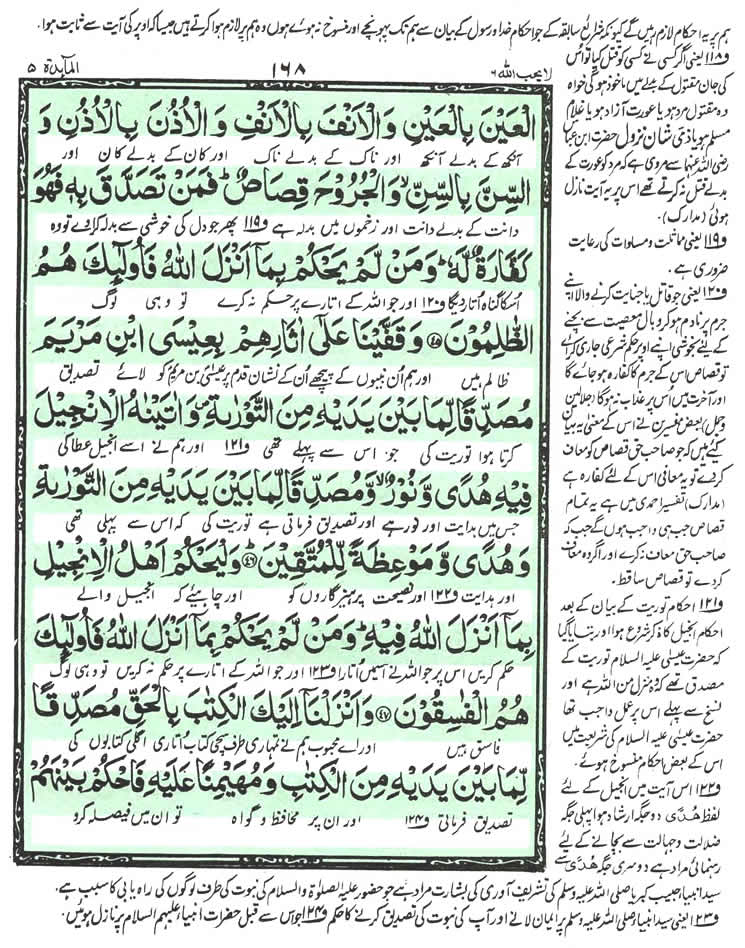 ہم پر یہ احکام لازم رہیں گے کیونکہ شرائع سابقہ کے جو احکام خدا و رسول کے بیان سے ہم تک پہونچے اور منسوخ نہ ہوئے ہوں وہ ہم پر لازم ہوا کرتے ہیں جیسا کہ اوپر کی آیت سے ثابت ہوا۔
المآىِٕدة ۵
۱۶۸
لا یحب اللہ ۶
الْعَیْنَ بِالْعَیْنِ وَ الْاَنْفَ بِالْاَنْفِ وَ الْاُذُنَ بِالْاُذُنِ وَ
آنکھ کے بدلے آنکھ اور ناک کے بدلے ناک اور کان کے بدلے کان اور
السِّنَّ بِالسِّنِّۙ وَ الْجُرُوْحَ قِصَاصٌؕ فَمَنْ تَصَدَّقَ بِهٖ فَهُوَ
دانت کے بدلے دانت اور زخموں میں بدلہ ہے و۱۱۹ پھر جو دل کی خوشی سے بدلہ کراوے تو وہ
كَفَّارَةٌ لَّهٗؕ وَ مَنْ لَّمْ یَحْكُمْ بِمَاۤ اَنْزَلَ اللّٰهُ فَاُولٰٓىِٕكَ هُمُ
اس کا گناہ اتار دیگا و۱۲۰ اور جو اللہ کے اتارے پر حکم نہ کرے تو وہی لوگ
الظّٰلِمُوْنَ۝۴۵ وَ قَفَّیْنَا عَلٰۤی اٰثَارِهِمْ بِعِیْسَی ابْنِ مَرْیَمَ
ظالم ہیں اور ہم ان نبیوں کے پیچھے ان کے نشان قدم پر عیسٰی بن مریم کو لائے تصدیق
مُصَدِّقًا لِّمَا بَیْنَ یَدَیْهِ مِنَ التَّوْرٰىةِ۪ وَ اٰتَیْنٰهُ الْاِنْجِیْلَ
کرتا ہوا توریت کی جو اس سے پہلے تھی و۱۲۱ اور ہم نے اسے انجیل عطا کی
فِیْهِ هُدًی وَّ نُوْرٌۙ وَّ مُصَدِّقًا لِّمَا بَیْنَ یَدَیْهِ مِنَ التَّوْرٰىةِ
جس میں ہدایت اور نور ہے اور تصدیق فرماتی ہے توریت کی کہ اس سے پہلی تھی
وَ هُدًی وَّ مَوْعِظَةً لِّلْمُتَّقِیْنَؕ۝۴۶ وَ لْیَحْكُمْ اَهْلُ الْاِنْجِیْلِ
اور ہدایت و۱۲۲ اور نصیحت پرہیزگاروں کو اور چاہیئے کہ انجیل والے
بِمَاۤ اَنْزَلَ اللّٰهُ فِیْهِؕ وَ مَنْ لَّمْ یَحْكُمْ بِمَاۤ اَنْزَلَ اللّٰهُ فَاُولٰٓىِٕكَ
حکم کریں اس پر جو اللہ نے اس میں اتارا و۱۲۳ اور جو اللہ کے اتارے پر حکم نہ کریں تو وہی لوگ
هُمُ الْفٰسِقُوْنَ۝۴۷ وَ اَنْزَلْنَاۤ اِلَیْكَ الْكِتٰبَ بِالْحَقِّ مُصَدِّقًا
فاسق ہیں اور اے محبوب ہم نے تمہاری طرف سچی کتاب اتاری اگلی کتابوں کی
لِّمَا بَیْنَ یَدَیْهِ مِنَ الْكِتٰبِ وَ مُهَیْمِنًا عَلَیْهِ فَاحْكُمْ بَیْنَهُمْ
تصدیق فرماتی و۱۲۴ اور ان پر محافظ و گواہ تو ان میں فیصلہ کرو
و۱۱۸ یعنی اگر کسی نے کسی کو قتل کیا تو اس
کی جان مقتول کے بدلے میں ماخوذ ہوگی خواہ
وہ مقتول مرد ہو یا عورت آزاد ہو یا غلام
مسلم ہو یا ذمی شان نزول حضرت ابن عباس
رضی اللہ عنہما سے مروی ہے کہ مرد کو عورت کے
بدلے قتل نہ کرتے تھے اس پر یہ آیت نازل
ہوئی (مدارک)۔
و۱۱۹ یعنی مماثلت و مساوات کی رعایت
ضروری ہے۔
و۱۲۰ یعنی جو قاتل یا جنایت کرنے والا اپنے
جرم پر نادم ہو کر وبال معصیت سے بچنے
کے لئے بخوشی اپنے اوپر حکم شرعی جاری کرائے
تو قصاص اس کے جرم کا کفارہ ہو جائے گا
اور آخرت میں اس پر عذاب نہ ہوگا (جلالین
وجمل) بعض مفسرین نے اس کے معنی یہ بیان
کئے ہیں کہ جو صاحب حق قصاص کو معاف
کردے تو یہ معافی اس کے لئے کفارہ ہے
(مدارک) تفسیر احمدی میں ہے یہ تمام
قصاص جب ہی واجب ہوں گے جب کہ
صاحب حق معاف نہ کرے اور اگر وہ معاف
کردے تو قصاص ساقط۔
و۱۲۱ احکام توریت کے بیان کے بعد
احکام انجیل کا ذکر شروع ہوا اور بتایا گیا
کہ حضرت عیسٰی علیہ السلام توریت کے
مصدق تھے کہ وہ منزل من اللہ ہے اور
نسخ سے پہلے اس پر عمل واجب تھا
حضرت عیسٰی علیہ السلام کی شریعت میں
اس کے بعض احکام منسوخ ہوئے۔
و۱۲۲ اس آیت میں انجیل کے لئے
لفظ هُدًی دو جگہ ارشاد ہوا پہلی جگہ
ضلالت و جہالت سے بچانے کے لئے
رہنمائی مراد ہے دوسری جگہ هُدًی سے
سید انبیا حبیب کبریا صلی اللہ علیہ وسلم کی تشریف آوری کی بشارت مراد ہے جو حضور علیہ الصلوٰۃ والسلام کی نبوت کی طرف لوگوں کی راہ یابی کا سبب ہے۔
و۱۲۳ یعنی سید انبیا صلی اللہ علیہ وسلم پر ایمان لانے اور آپ کی نبوت کی تصدیق کرنے کا حکم و۱۲۴ جو اس سے قبل حضرات انبیا علیہم السلام پر نازل ہوئیں۔